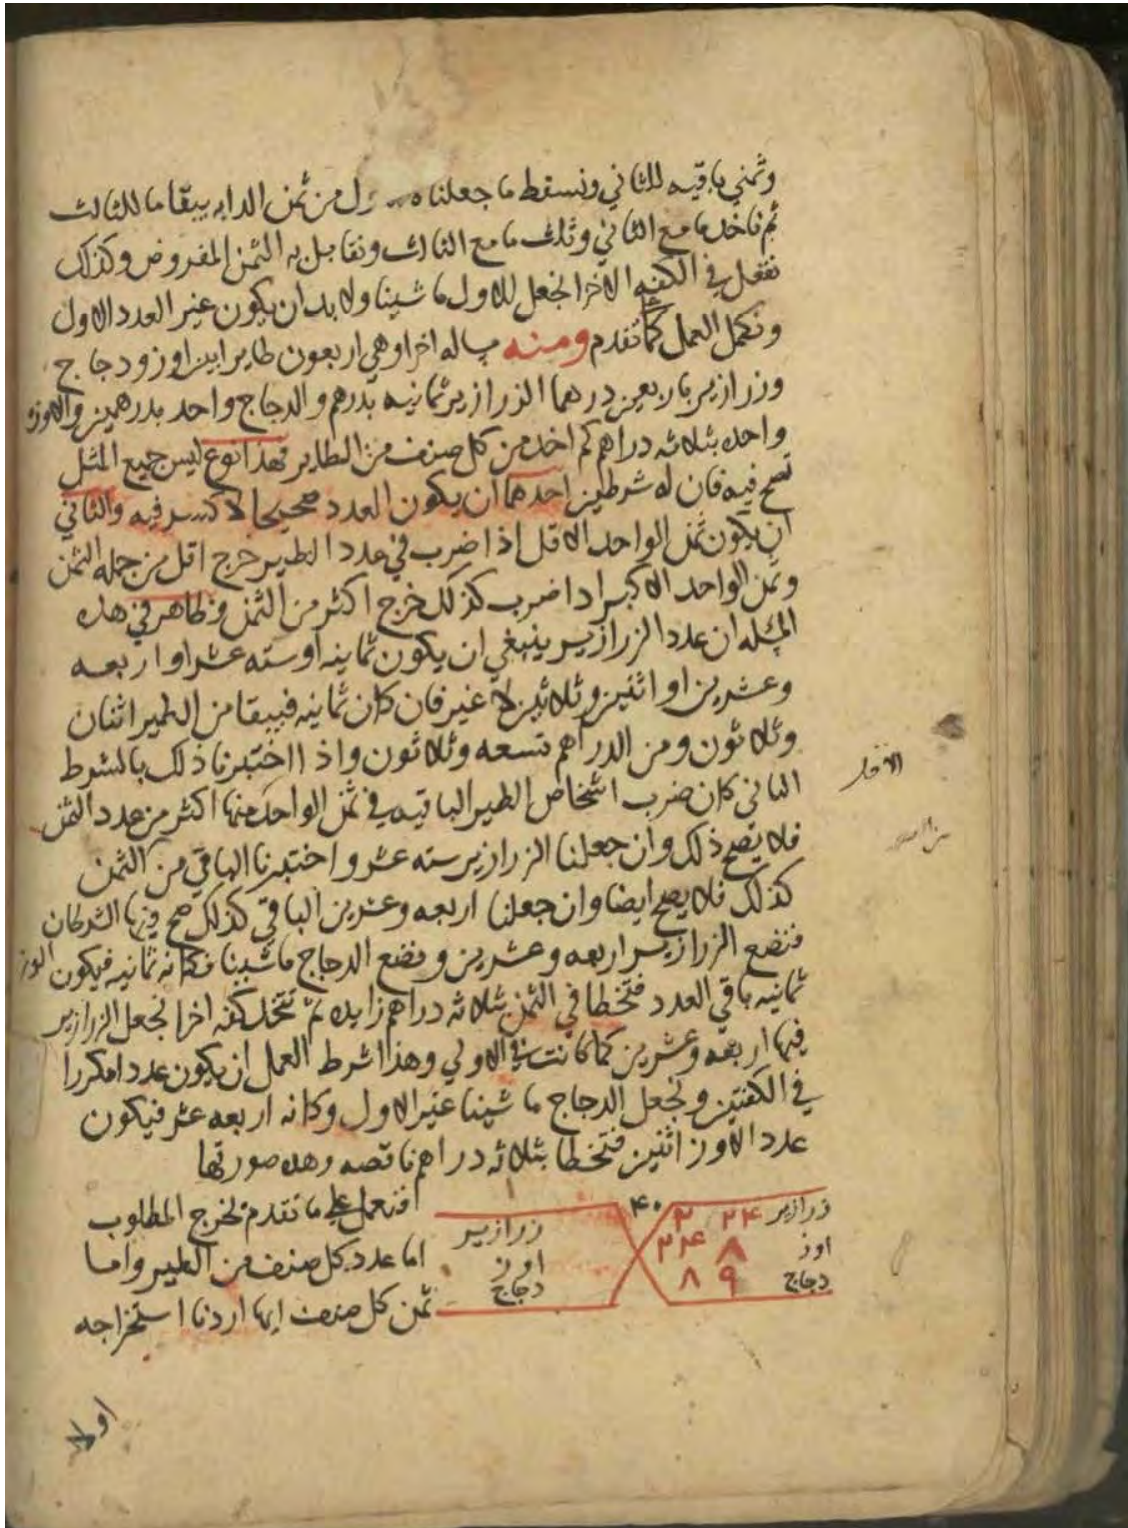 وثمني باقيه للثاني ونسقط ما جعلناه من ثمن الدابه يبقا ما للثالث
ثم ناخد ما مع الثاني وثلث ما مع الثالث ونقابل به الثمن المفروض وكذلك
نفعل في الكفه الاخرا نجعل للاول ما شينا ولا بد ان يكون غير العدد الاول
ونكمل العمل كما تقدم ومنه مساله اخرا وهي اربعون طاير ابين اوز ودجاج
وزرازير باربعين درهما الزرازير ثمانيه بدرهم والدجاج واحد بدرهمين والاوزه
واحده بثلاثه دراهم كم اخد من كل صنف من الطاير فهذا نوع ليس جميع المثل
تصح فيه فان له شرطين احدهما ان يكون العدد صحيحا لا كسر فيه والثاني
ان يكون ثمن الواحد الاقل اذا ضرب في عدد الطير خرج اقل من جمله الثمن
وثمن الواحد الاكبر اذا ضرب كذلك خرج اكثر من الثمن وظاهر في هذه
المسله ان عدد الزرازير ينبغي ان يكون ثمانيه او سته عشر او اربعه
وعشرين او اثنين وثلاثين لا غير فان كان ثمانيه فيبقا من الطير اثنان
وثلاثون ومن الدراهم تسعه وثلاثون واذا اختبرنا ذلك بالشرط
الثاني كان ضرب اشخاص الطير الباقيه في ثمن الواحد منها اكثر من عدد الثمن
فلا يصح ذلك وان جعلنا الزرازير سته عشر واختبرنا الباقي من الثمن
كذلك فلا يصح ايضا وان جعلنا اربعه وعشرين الباقي كذلك صح فيها الشرطان
فنضع الزرازير اربعه وعشرين ونضع الدجاج ما شينا فكانه ثمانيه فيكون الوز
ثمانيه باقي العدد فتخطا في الثمن بثلاثه دراهم زايده ثم نتخد كفه اخرا نجعل الزرازير
فيها اربعه وعشرين كما كانت في الاولي وهذا شرط العمل ان يكون عددا مكررا
في الكفتين ونجعل الدجاج ما شينا غير الاول وكانه اربعه عشر فيكون
عدد الاوز اثنين فتخطا بثلاثه دراهم ناقصه وهده صورتها
زرازير ٢٤ ٣ ٤٠ زرازير
اوز ٨ ٢٤ اوز
دجاج ٩ ٨ دجاج
افنعمل علي ما تقدم نخرج المطلوب
اما عدد كل صنف من الطير واما
ثمن كل صنف ايها اردنا استخراجه
اولا